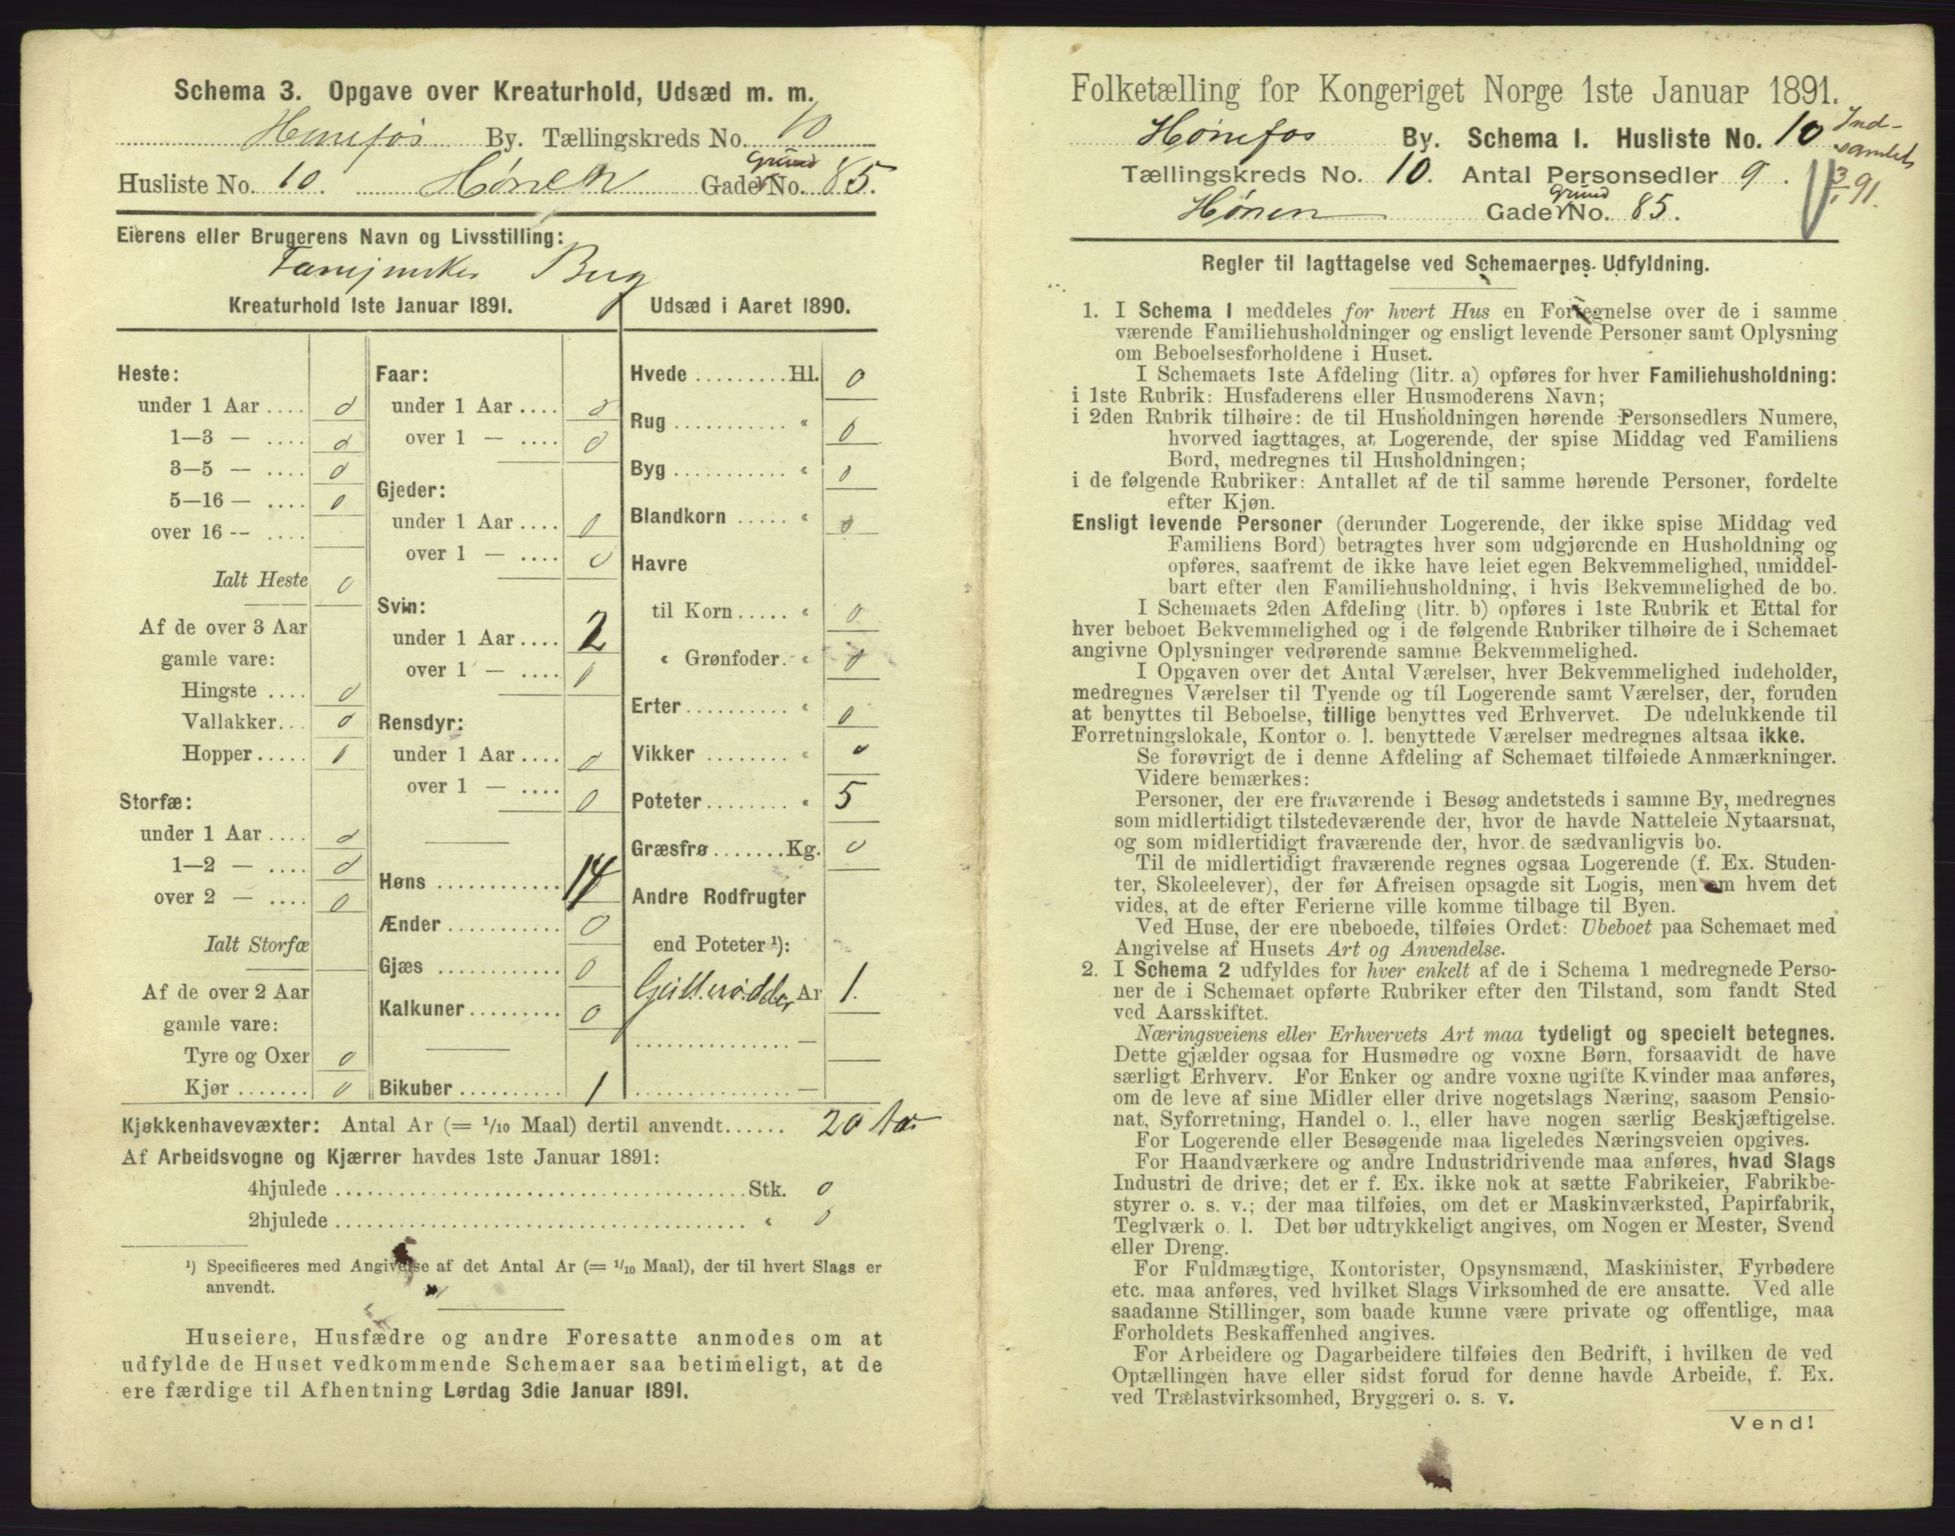 Schema 3. Opgave over Kreaturhold, Udsæd m. m.
Hønefos By. Tællingskreds No. 10
Husliste No. 10. Hønen Grund Gade No. 85.
Eierens eller Brugerens Navn og Livsstilling:
Bug
Kreaturhold 1ste Januar 1891.
Heste:
under 1 Aar .... 0
1—3 — .... 0
3—5 — .... 0
5—16 — .... 0
over 16 -- ....
Ialt Heste 0
Af de over 3 Aar
gamle vare:
Hingste .... 0
Vallakker... 0
Hopper..... 0
Storfæ:
under 1 Aar .... 0
1—2 — .... 0
over 2 — .... 0
Ialt Storfæ
Af de over 2 Aar
gamle vare:
Tyre og Oxer 0
Kjør ....... 0
Faar:
under 1 Aar .... 0
over 1 — .... 0
Gjeder:
under 1 Aar .... 0
over 1 — .... 0
Svin:
under 1 Aar .... 2
over 1 — .... 0
Rensdyr:
under 1 Aar .... 0
over 1 — .... 0
Høns ............ 14
Ænder ........... 0
Gjæs ............ 0
Kalkuner ......... 0
Bikuber .......... 1
Udsæd i Aaret 1890.
Hvede ......... Hl. 0
Rug ........... « 0
Byg ........... « 0
Blandkorn ..... « 0
Havre
til Korn ..... « 0
« Grønfoder. « 0
Erter .......... « 0
Vikker ........ « 0
Poteter ........ « 5
Græsfrø ....... Kg. 0
Andre Rodfrugter
end Poteter ¹):
Gullerødder Ar 1.
............... —
............... —
Kjøkkenhavevæxter: Antal Ar (= 1/10 Maal) dertil anvendt...... 20 Ar
Af Arbeidsvogne og Kjærrer havdes 1ste Januar 1891:
4hjulede ................................. Stk. 0
2hjulede ................................. « 0
¹) Specificeres med Angivelse af det Antal Ar (= 1/10 Maal), der til hvert Slags er
anvendt.
Huseiere, Husfædre og andre Foresatte anmodes om at
udfylde de Huset vedkommende Schemaer saa betimeligt, at de
ere færdige til Afhentning Lørdag 3die Januar 1891.
Folketælling for Kongeriget Norge 1ste Januar 1891.
Hønefos By. Schema 1. Husliste No. 10 Ind-
samlet
Tællingskreds No. 10. Antal Personsedler 9. 3/1 91.
Hønen Grund Gade No. 85.
Regler til Iagttagelse ved Schemaernes Udfyldning.
1. I Schema 1 meddeles for hvert Hus en Fortegnelse over de i samme
værende Familiehusholdninger og ensligt levende Personer samt Oplysning
om Beboelsesforholdene i Huset.
I Schemaets 1ste Afdeling (litr. a) opføres for hver Familiehusholdning:
i 1ste Rubrik: Husfaderens eller Husmoderens Navn;
i 2den Rubrik tilhøire: de til Husholdningen hørende Personsedlers Numere,
hvorved iagttages, at Logerende, der spise Middag ved Familiens
Bord, medregnes til Husholdningen;
i de følgende Rubriker: Antallet af de til samme hørende Personer, fordelte
efter Kjøn.
Ensligt levende Personer (derunder Logerende, der ikke spise Middag ved
Familiens Bord) betragtes hver som udgjørende en Husholdning og
opføres, saafremt de ikke have leiet egen Bekvemmelighed, umiddel-
bart efter den Familiehusholdning, i hvis Bekvemmelighed de bo.
I Schemaets 2den Afdeling (litr. b) opføres i 1ste Rubrik et Ettal for
hver beboet Bekvemmelighed og i de følgende Rubriker tilhøire de i Schemaet
angivne Oplysninger vedrørende samme Bekvemmelighed.
I Opgaven over det Antal Værelser, hver Bekvemmelighed indeholder,
medregnes Værelser til Tyende og til Logerende samt Værelser, der, foruden
at benyttes til Beboelse, tillige benyttes ved Erhvervet. De udelukkende til
Forretningslokale, Kontor o. l. benyttede Værelser medregnes altsaa ikke.
Se forøvrigt de i denne Afdeling af Schemaet tilføiede Anmærkninger.
Videre bemærkes:
Personer, der ere fraværende i Besøg andetsteds i samme By, medregnes
som midlertidigt tilstedeværende der, hvor de havde Natteleie Nytaarsnat,
og som midlertidigt fraværende der, hvor de sædvanligvis bo.
Til de midlertidigt fraværende regnes ogsaa Logerende (f. Ex. Studen-
ter, Skoleelever), der før Afreisen opsagde sit Logis, men om hvem det
vides, at de efter Ferierne ville komme tilbage til Byen.
Ved Huse, der ere ubeboede, tilføies Ordet: Ubeboet paa Schemaet med
Angivelse af Husets Art og Anvendelse.
2. I Schema 2 udfyldes for hver enkelt af de i Schema 1 medregnede Perso-
ner de i Schemaet opførte Rubriker efter den Tilstand, som fandt Sted
ved Aarsskiftet.
Næringsveiens eller Erhvervets Art maa tydeligt og specielt betegnes.
Dette gjælder ogsaa for Husmødre og voxne Børn, forsaavidt de have
særligt Erhverv. For Enker og andre voxne ugifte Kvinder maa anføres,
om de leve af sine Midler eller drive nogetslags Næring, saasom Pensio-
nat, Syforretning, Handel o. l., eller have nogen særlig Beskjæftigelse.
For Logerende eller Besøgende maa ligeledes Næringsveien opgives.
For Haandværkere og andre Industridrivende maa anføres, hvad Slags
Industri de drive; det er f. Ex. ikke nok at sætte Fabrikeier, Fabrikbe-
styrer o. s. v.; der maa tilføies, om det er Maskinværksted, Papirfabrik,
Teglværk o. l. Det bør udtrykkeligt angives, om Nogen er Mester, Svend
eller Dreng.
For Fuldmægtige, Kontorister, Opsynsmænd, Maskinister, Fyrbødere
etc. maa anføres, ved hvilket Slags Virksomhed de ere ansatte. Ved alle
saadanne Stillinger, som baade kunne være private og offentlige, maa
Forholdets Beskaffenhed angives.
For Arbeidere og Dagarbeidere tilføies den Bedrift, i hvilken de ved
Optællingen have eller sidst forud for denne havde Arbeide, f. Ex.
ved Trælastvirksomhed, Bryggeri o. s. v.
Vend!